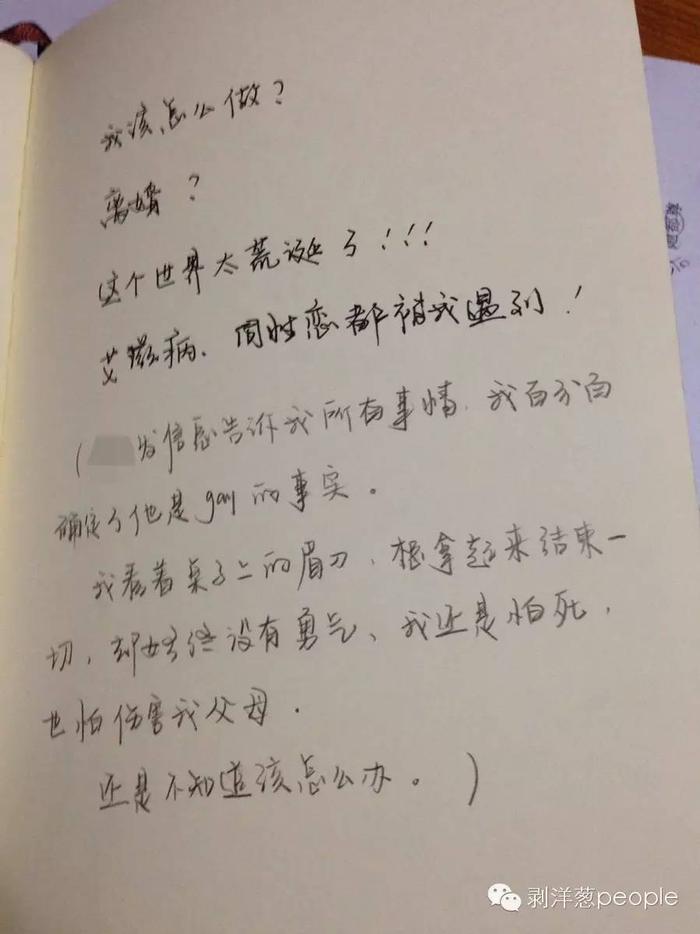 我该怎么做？
离婚？
这个世界太荒诞了！！！
艾滋病、同性恋都被我遇到！
（ 发信息告诉我所有事情，我百分百
确定了他是gay的事实。
我看着桌子上的眉刀，想拿起来结束一
切，却始终没有勇气、我还是怕死，
也怕伤害我父母．
还是不知道该怎么办。）
剥洋葱people